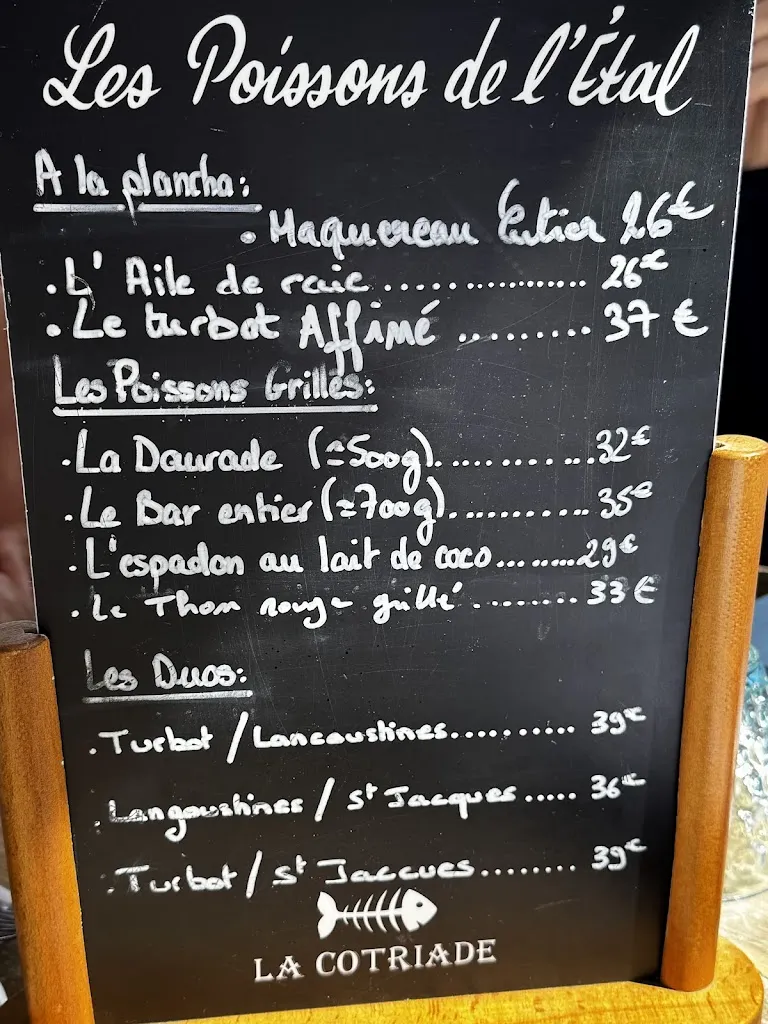 Les Poissons de l'Étal
A la plancha:
. Maquereau Entier 26€
. L' Aile de raie .................. 26€
. Le turbot Affiné .......... 37 €
Les Poissons Grillés:
. La Daurade (≃500g)..............32€
. Le Bar entier (≃700g)............ 35€
. L'espadon au lait de coco.........29€
. Le Thon rouge grillé ........... 33 €
Les Duos:
. Turbot / Langoustines........... 39€
. Langoustines / St Jacques ..... 36€
. Turbot / St Jacques......... 39€
LA COTRIADE